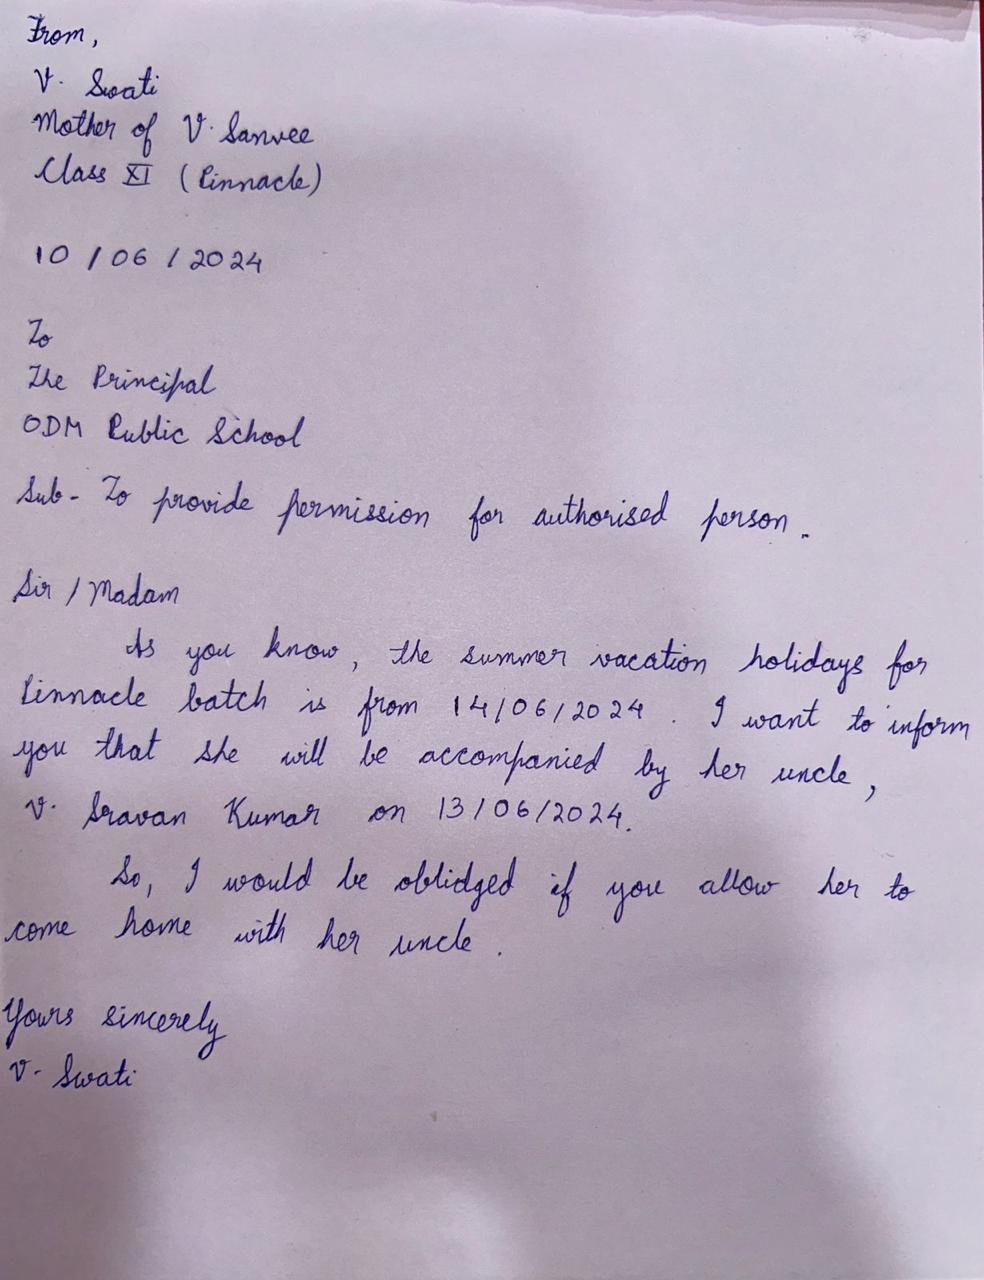 From,
V. Swati
Mother of V. Sanvee
Class XI (Pinnacle)
10/06/2024
To
The Principal
ODM Public School
Sub- To provide permission for authorised person.
Sir / Madam
As you know, the summer vacation holidays for
Pinnacle batch is from 14/06/2024. I want to inform
you that she will be accompanied by her uncle,
V. Sravan Kumar on 13/06/2024.
So, I would be oblidged if you allow her to
come home with her uncle.
Yours sincerely
V. Swati